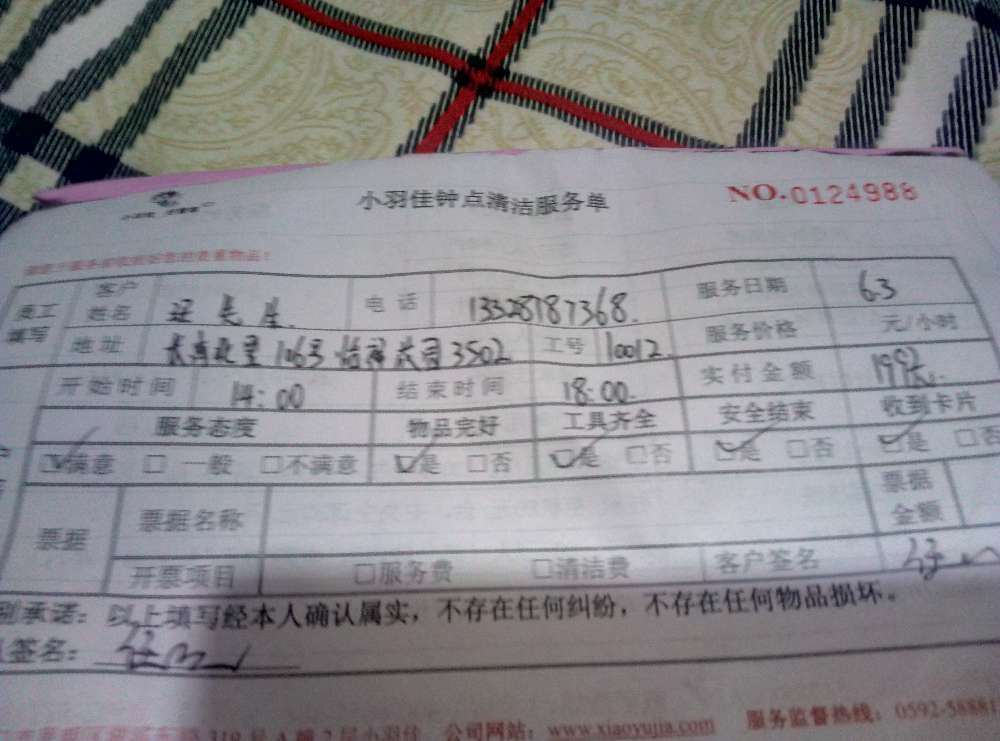 小羽佳钟点清洁服务单 NO.0124988
员工填写 客户姓名 长生 电话 13328787368 服务日期 6.3
地址 106号 3502 工号 10012 服务价格 元/小时
开始时间 14:00 结束时间 18:00 实付金额 199
服务态度 物品完好 工具齐全 安全结束 收到卡片
满意 一般 不满意 是 否 是 否 是 否 是 否
票据 票据名称 票据金额
开票项目 服务费 清洁费 客户签名
承诺：以上填写经本人确认属实，不存在任何纠纷，不存在任何物品损坏。
签名：
公司网站：www.xiaoyujia.com 服务监督热线：0592-58881